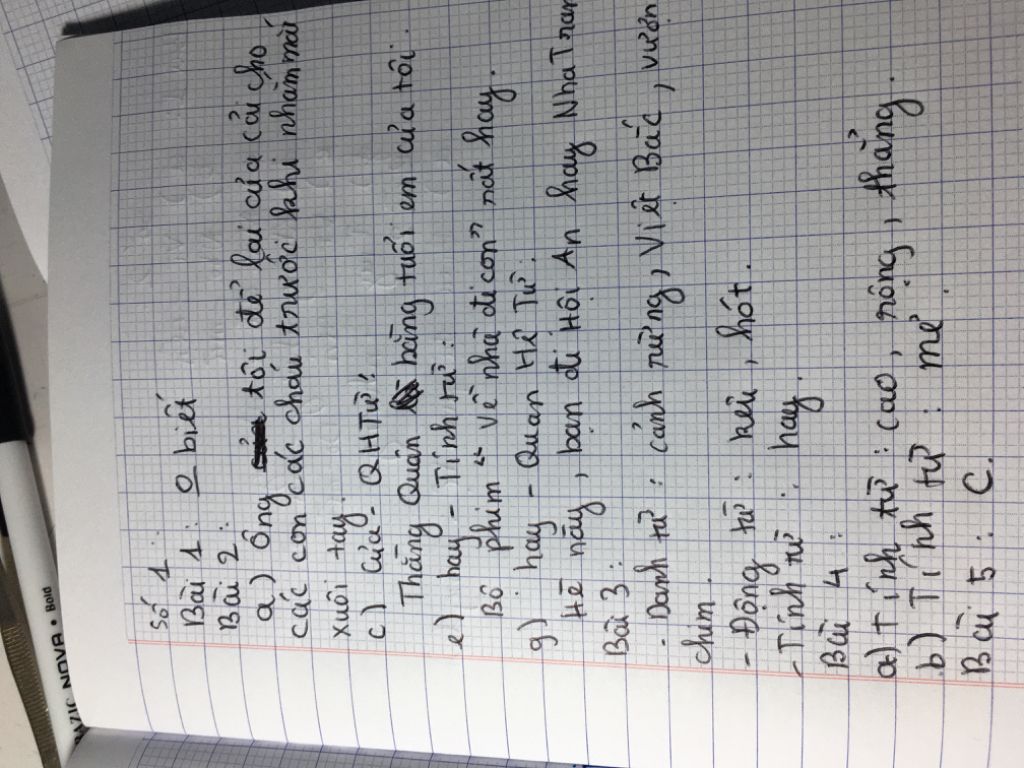 Số 1:
Bài 1: 0 biết
Bài 2:
a) Ông tôi để lại của cải cho
các con các cháu trước khi nhắm mắt
xuôi tay.
c) của - QHTừ!
Thằng Quân bằng tuổi em của tôi.
e) hay - Tính từ:
Bộ phim "về nhà đi con" rất hay.
g) hay - Quan Hệ Từ:
Hè này, bạn đi Hội An hay Nha Tran
Bài 3:
- Danh từ: cảnh rừng, Việt Bắc, vượn
chim.
- Động từ: kêu, hót.
- Tính từ: hay.
Bài 4:
a) Tính từ: cao, rộng, thẳng.
b) Tính từ: mẻ
Bài 5: C.
RAZIC NOVA • Bold